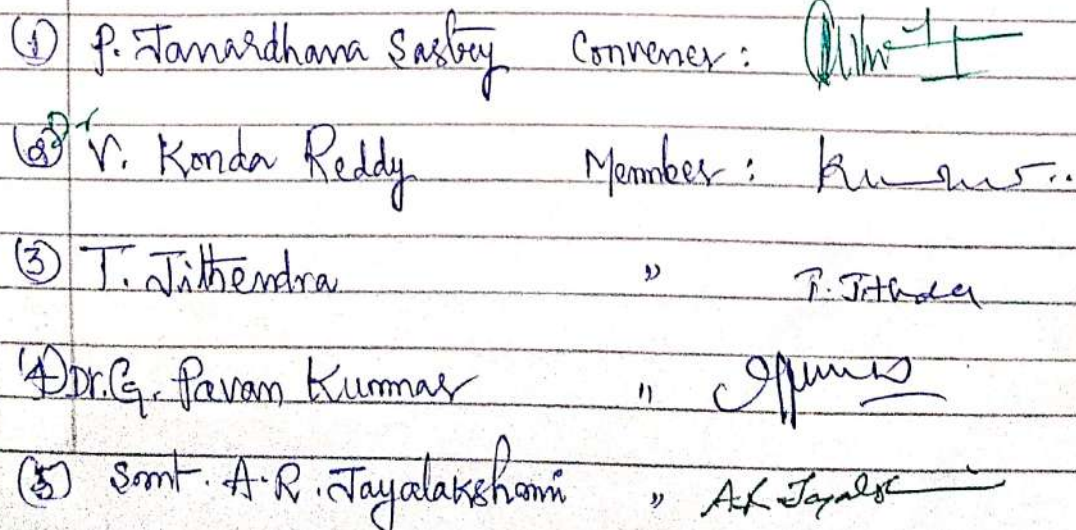 (1) P. Janardhana Sastry Convener:
(2) Dr V. Konda Reddy Member:
(3) T. Jithendra " T. Jithendra
(4) Dr. G. Pavan Kumar "
(5) Smt. A.R. Jayalakshmi "